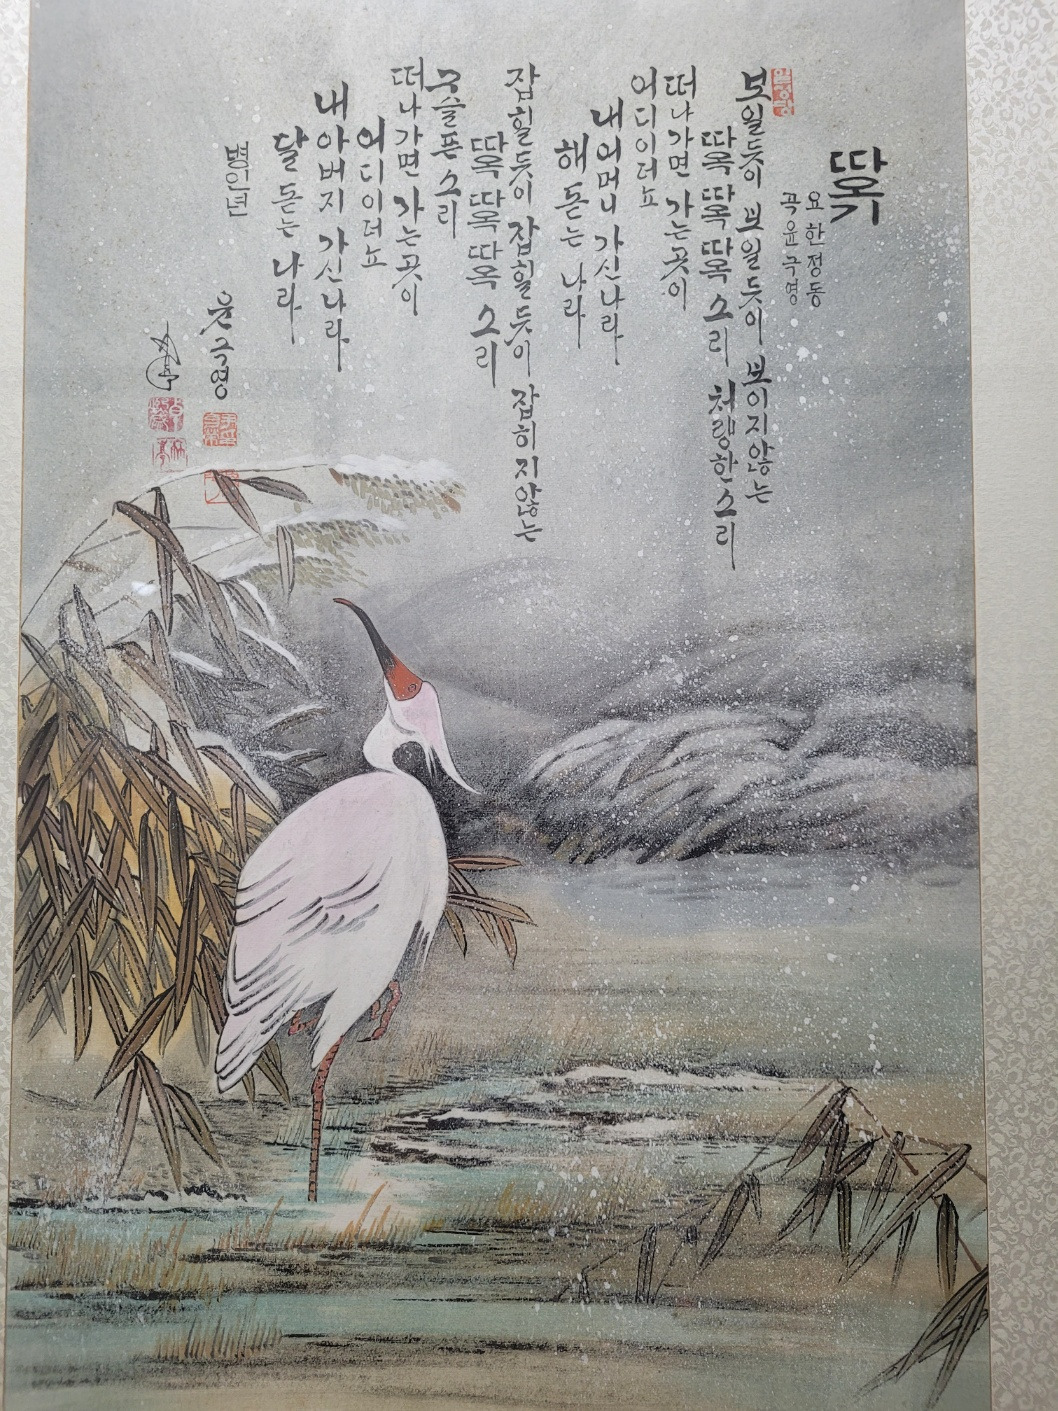 따오기
요 한정동
곡 윤극영
보일듯이 보일듯이 보이지않는
따옥 따옥 따옥 소리 처량한 소리
떠나가면 가는곳이
어디이더뇨
내어머니 가신나라
해 돋는 나라
잡힐듯이 잡힐듯이 잡히지않는
따옥 따옥 따옥 소리
구슬픈 소리
떠나가면 가는곳이
어디이더뇨
내아버지 가신나라
달 돋는 나라
병인년
윤극영